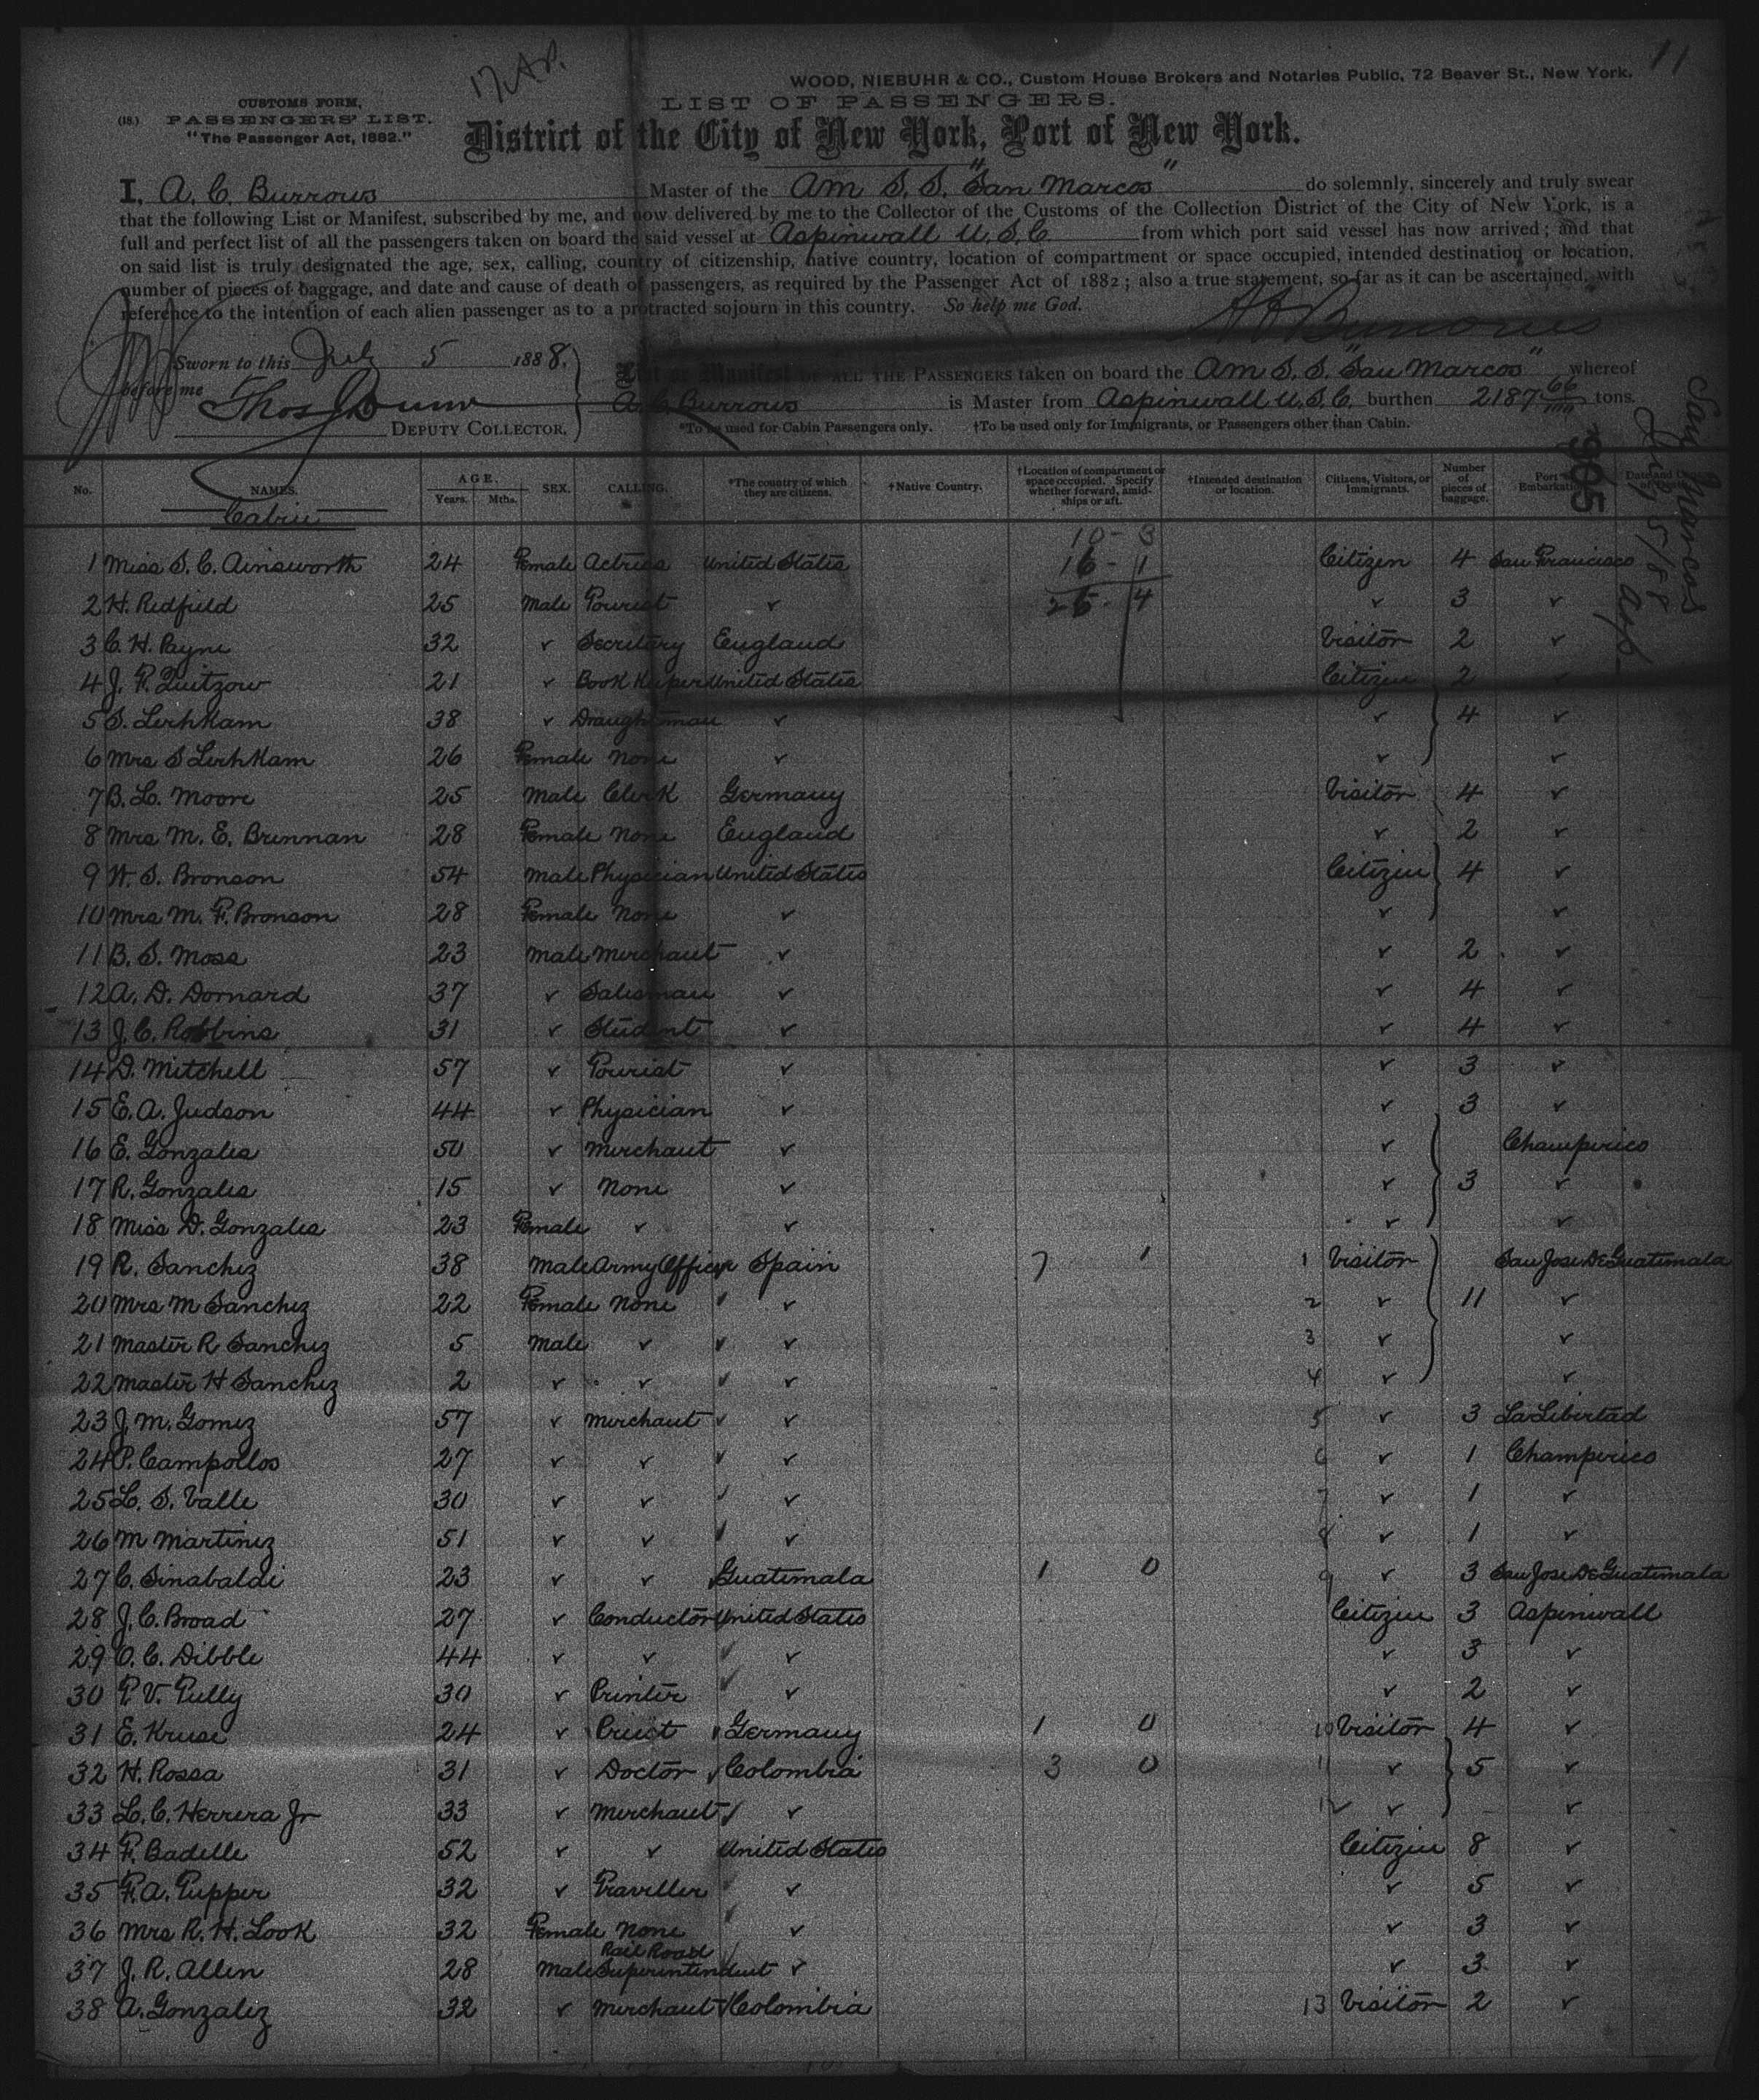 17 Ap.
11
WOOD, NIEBUHR & CO., Custom House Brokers and Notaries Public, 72 Beaver St., New York.
CUSTOMS FORM,
(18.) PASSENGERS' LIST.
"The Passenger Act, 1882."
LIST OF PASSENGERS.
District of the City of New York, Port of New York.
I, A. C. Burrows Master of the Am S. S. "San Marcos" do solemnly, sincerely and truly swear
that the following List or Manifest, subscribed by me, and now delivered by me to the Collector of the Customs of the Collection District of the City of New York, is a
full and perfect list of all the passengers taken on board the said vessel at Aspinwall U.S.C. from which port said vessel has now arrived; and that
on said list is truly designated the age, sex, calling, country of citizenship, native country, location of compartment or space occupied, intended destination or location,
number of pieces of baggage, and date and cause of death of passengers, as required by the Passenger Act of 1882; also a true statement, so far as it can be ascertained, with
reference to the intention of each alien passenger as to a protracted sojourn in this country. So help me God.
Burrows
Sworn to this July 5 1888.
before me Thos J Dunn
DEPUTY COLLECTOR.
List or Manifest OF ALL THE PASSENGERS taken on board the Am S. S. "San Marcos" whereof
A. C. Burrows is Master from Aspinwall U.S.C. burthen 2187 66/100 tons.
*To be used for Cabin Passengers only. †To be used only for Immigrants, or Passengers other than Cabin.
San Marcos
July 5/88
Asp.
905
No. NAMES. AGE. Years. Mths. SEX. CALLING. *The country of which they are citizens. †Native Country. †Location of compartment or space occupied. Specify whether forward, amidships or aft. †Intended destination or location. Citizens, Visitors, or Immigrants. Number of pieces of baggage. Port of Embarkation. Date and Cause
Cabin
10 - 3
1 Miss S. C. Ainsworth 24 Female Actress United States 16 - 1 Citizen 4 San Francisco
2 H. Redfield 25 Male Tourist ✓ 26 - 4 ✓ 3 ✓
3 C. H. Payne 32 ✓ Secretary England Visitor 2 ✓
4 J. F. Quitzow 21 ✓ Book Keeper United States Citizen 2 ✓
5 S. Lerhkam 38 ✓ Draughtsman ✓ ✓ 4 ✓
6 Mrs S Lerhkam 26 Female None ✓ ✓ ✓
7 B. L. Moore 25 Male Clerk Germany Visitor 4 ✓
8 Mrs M. E. Brennan 28 Female None England ✓ 2 ✓
9 W. S. Bronson 54 Male Physician United States Citizen 4 ✓
10 Mrs M. F. Bronson 28 Female None ✓ ✓ ✓
11 B. S. Moss 23 Male Merchant ✓ ✓ 2 ✓
12 A. D. Dornard 37 ✓ Salesman ✓ ✓ 4 ✓
13 J. C. Robbins 31 ✓ Student ✓ ✓ 4 ✓
14 D. Mitchell 57 ✓ Tourist ✓ ✓ 3 ✓
15 E. A. Judson 44 ✓ Physician ✓ ✓ 3 ✓
16 E. Gonzales 50 ✓ Merchant ✓ ✓ Champerico
17 R. Gonzales 15 ✓ None ✓ ✓ 3 ✓
18 Miss D. Gonzales 23 Female ✓ ✓ ✓ ✓
19 R. Sanchez 38 Male Army Officer Spain 7 1 1 Visitor San Jose De Guatemala
20 Mrs M Sanchez 22 Female None ✓ ✓ 2 ✓ 11 ✓
21 Master R Sanchez 5 Male ✓ ✓ ✓ 3 ✓ ✓
22 Master H Sanchez 2 ✓ ✓ ✓ ✓ 4 ✓ ✓
23 J. M. Gomez 57 ✓ Merchant ✓ ✓ 5 ✓ 3 La Libertad
24 P. Campollos 27 ✓ ✓ ✓ ✓ 6 ✓ 1 Champerico
25 L. S. Valle 30 ✓ ✓ ✓ ✓ 7 ✓ 1 ✓
26 M Martinez 51 ✓ ✓ ✓ ✓ 8 ✓ 1 ✓
27 C. Sinabaldi 23 ✓ ✓ Guatemala 1 0 9 ✓ 3 San Jose De Guatemala
28 J. C. Broad 27 ✓ Conductor United States Citizen 3 Aspinwall
29 O. C. Dibble 44 ✓ ✓ ✓ ✓ ✓ 3 ✓
30 P. V. Pully 30 ✓ Printer ✓ ✓ ✓ 2 ✓
31 E. Kruse 24 ✓ Priest ✓ Germany 1 0 10 Visitor 4 ✓
32 H. Rossa 31 ✓ Doctor ✓ Colombia 3 0 11 ✓ 5 ✓
33 L. C. Herrera Jr 33 ✓ Merchant ✓ ✓ 12 ✓ ✓
34 F. Badelle 52 ✓ ✓ United States Citizen 8 ✓
35 F. A. Pepper 32 ✓ Traveller ✓ ✓ 5 ✓
36 Mrs R. H. Look 32 Female None ✓ ✓ ✓ 3 ✓
37 J. R. Allen 28 Male Rail Road Superintendent ✓ ✓ 3 ✓
38 A. Gonzalez 32 ✓ Merchant ✓ Colombia 13 Visitor 2 ✓